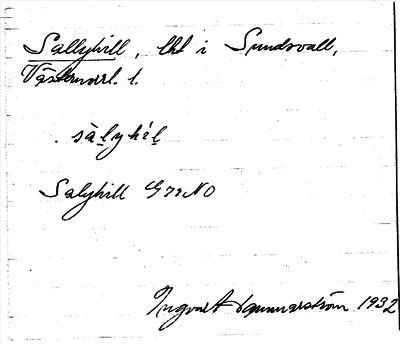 Sallyhill, lht i Sundsvall,
Västernorrl. l.
. sàlyhíl
Salyhill G72NO
Ingvart Hammarström 1932